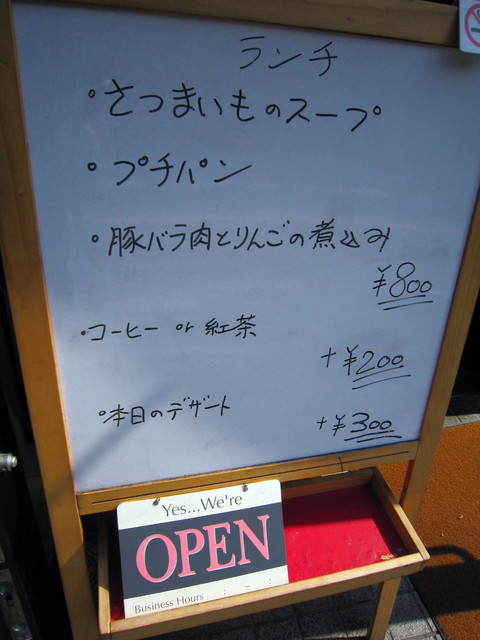 ランチ
・さつまいものスープ
・プチパン
・豚バラ肉とりんごの煮込み
¥800
・コーヒー or 紅茶
+¥200
・本日のデザート
+¥300
Yes...We're
OPEN
Business Hours : ~ :